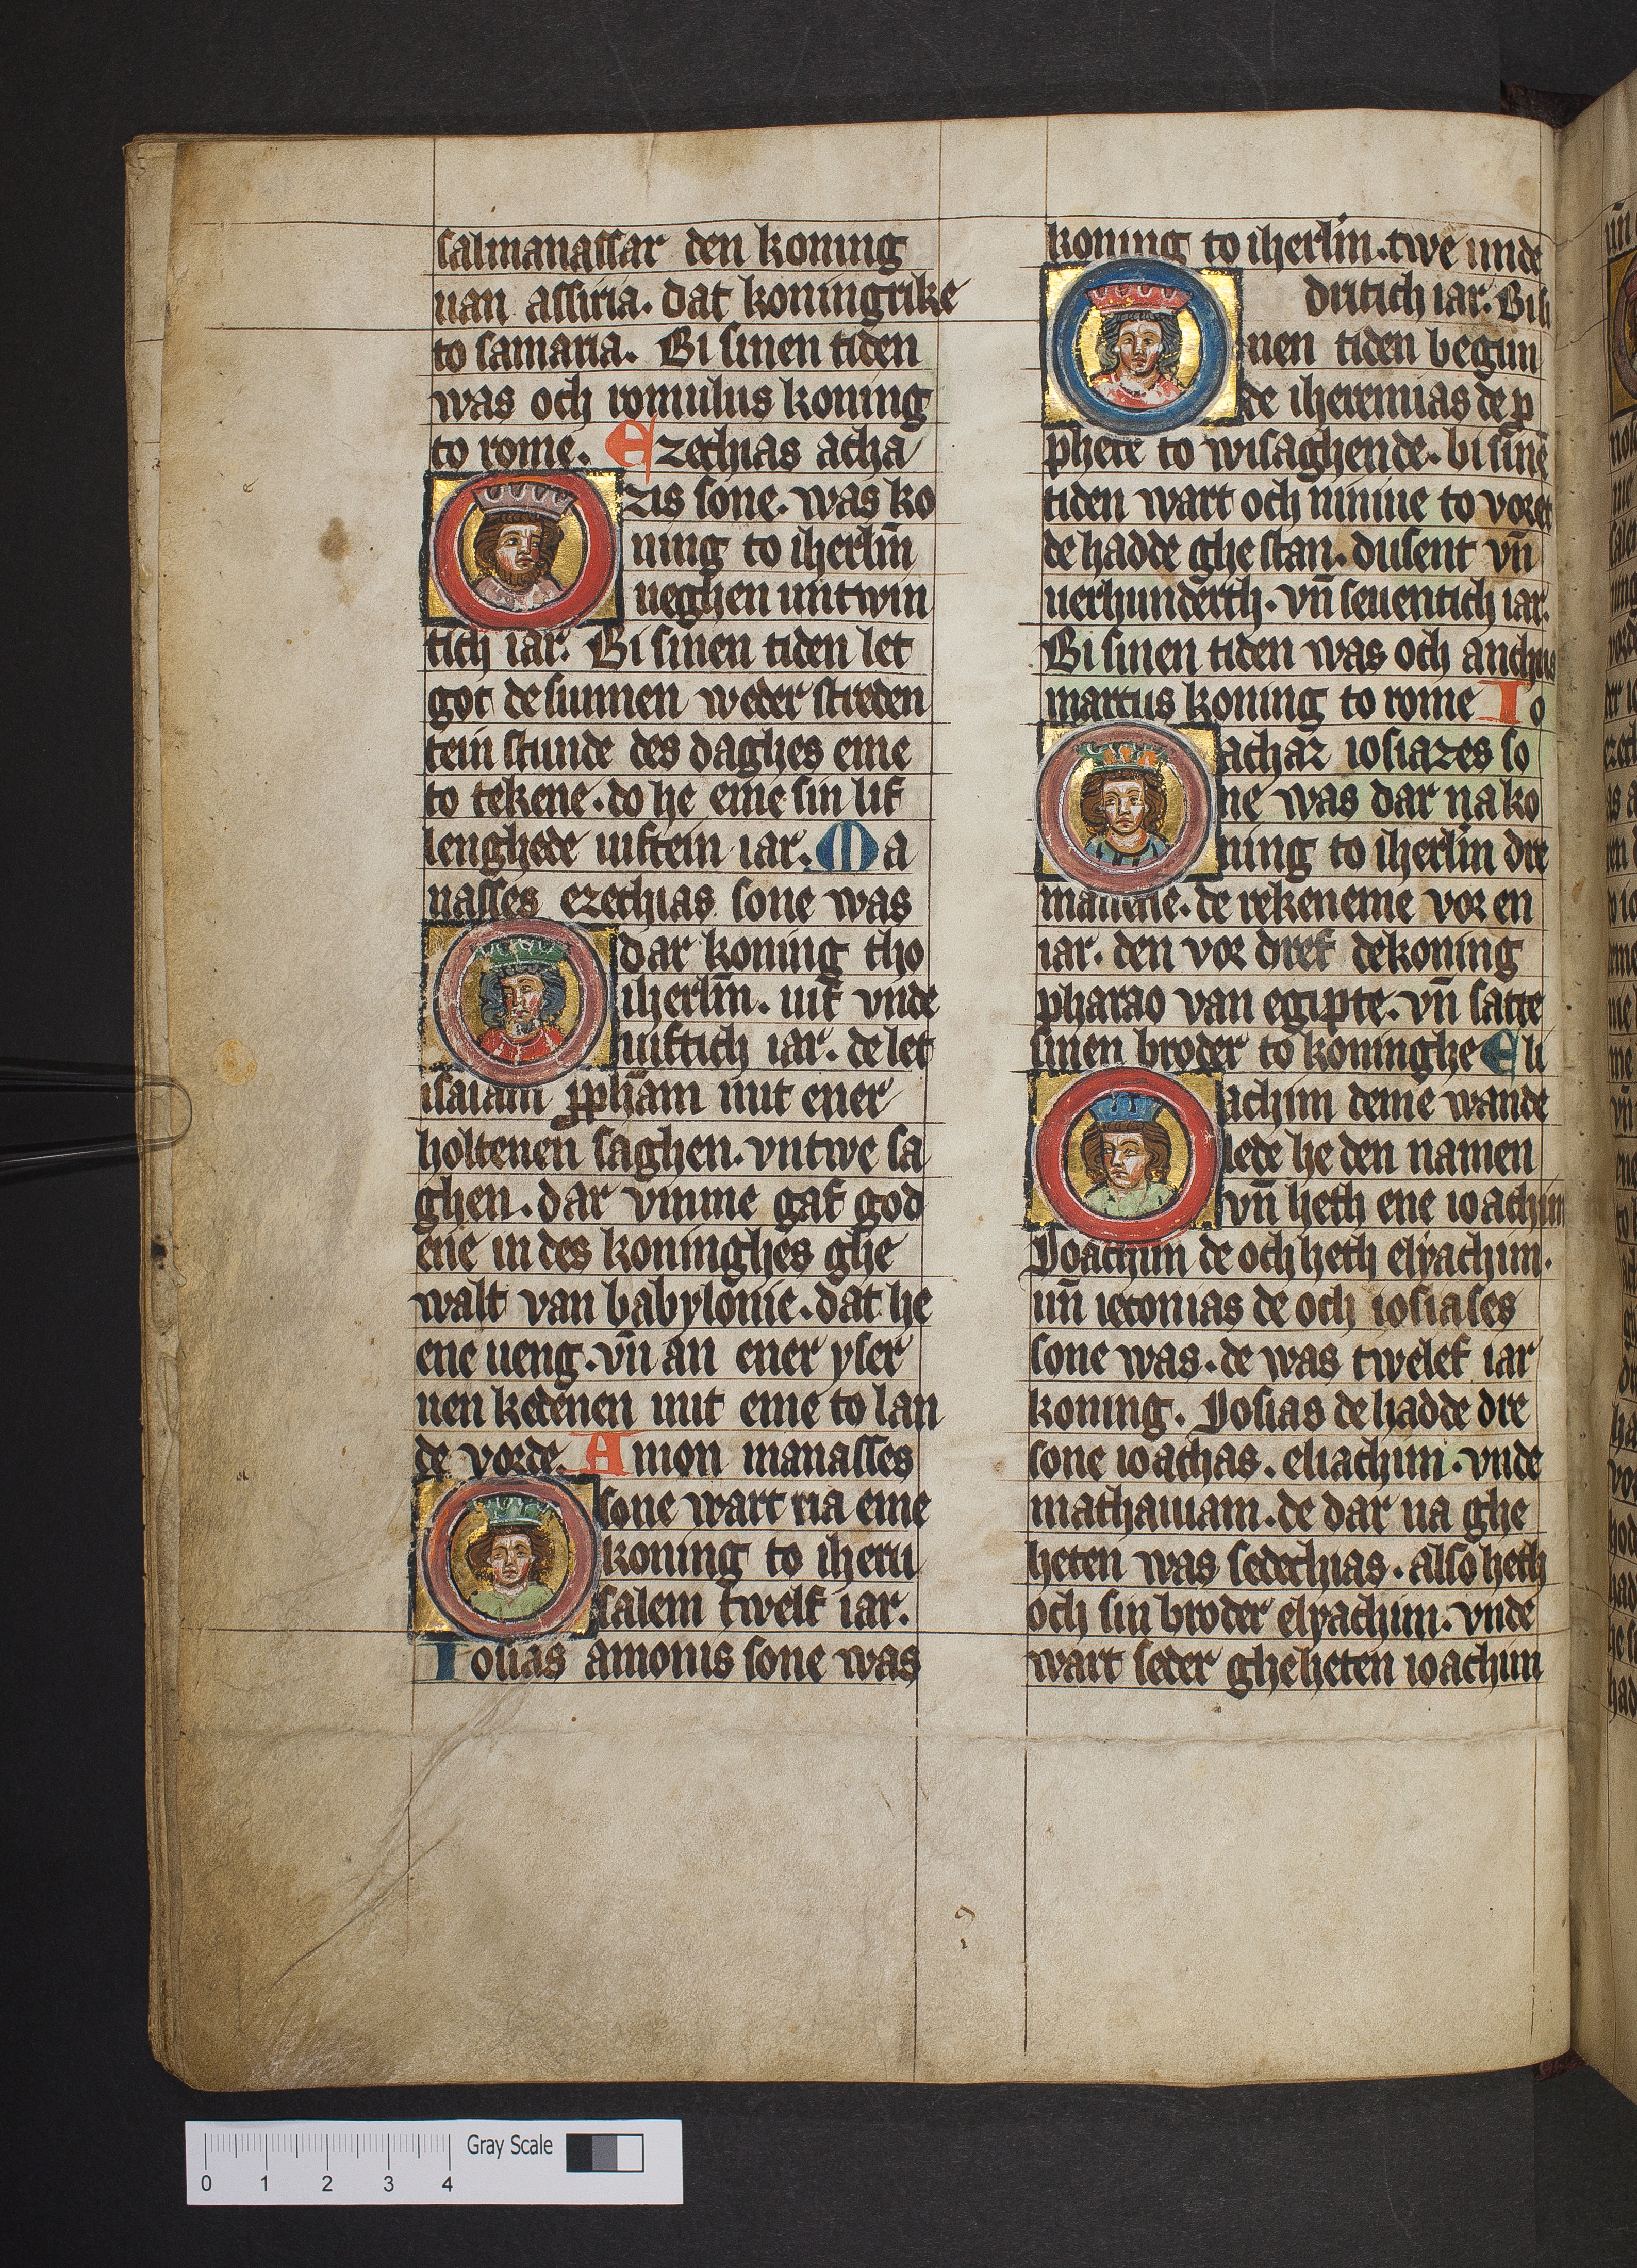 salmanassar den koning
uan assiria. dat koningrike
to samaria. Bi sinen tiden
was och romulus koning
to rome. Ezechias acha
zis sone. was ko
ning to iherlm̄
ueghen untwin
tich iar. Bi sinen tiden let
got de sunnen weder streden
tein stunde des daghes eme
to tekene. do he eme sin lif
lenghede uiftein iar. Ma
nasses ezechias sone was
dar koning tho
iherlm̄. uif vnde
uiftich iar. de let
isaiam pph̄am mit ener
holtenen saghen. vntwe sa
ghen. dar vmme gaf god
ene in des koninghes ghe
walt van babylonie. dat he
ene ueng. vn̄ an ener yser
nen kedenen mit eme to lan
de vorde. Amon manasses
sone wart na eme
koning to iheru
salem twelf iar.
Iosias amonis sone was
koning to iherlm̄. twe unde
dritich iar. Bi si
nen tiden begun
de iheremias de p
phete to wisaghende. bi sinē
tiden wart och niniue to voret
de hadde ghe stan. dusent vn̄
uerhunderth. vn̄ seuentich iar.
Bi sinen tiden was och anchus
martius koning to rome Io
achaz iosiazes so
ne was dar na ko
ning to iherlm̄ dre
manene. de rekeneme vor en
iar. den vor dref dekoning
pharao van egipte. vn̄ satte
sinen broder to koninghe Eli
achim deme wande
lede he den namen
vn̄ heth ene ioachim
Joachim de och heth elyachim.
un̄ ieconias de och iosiases
sone was. de was twelef iar
koning. Josias de hadde dre
sone ioachas. eliachim. vnde
mathaniam. de dar na ghe
heten was sedechias. also heth
och sin broder elyachim. vnde
wart seder gheheten ioachim
0 1 2 3 4 Gray Scale